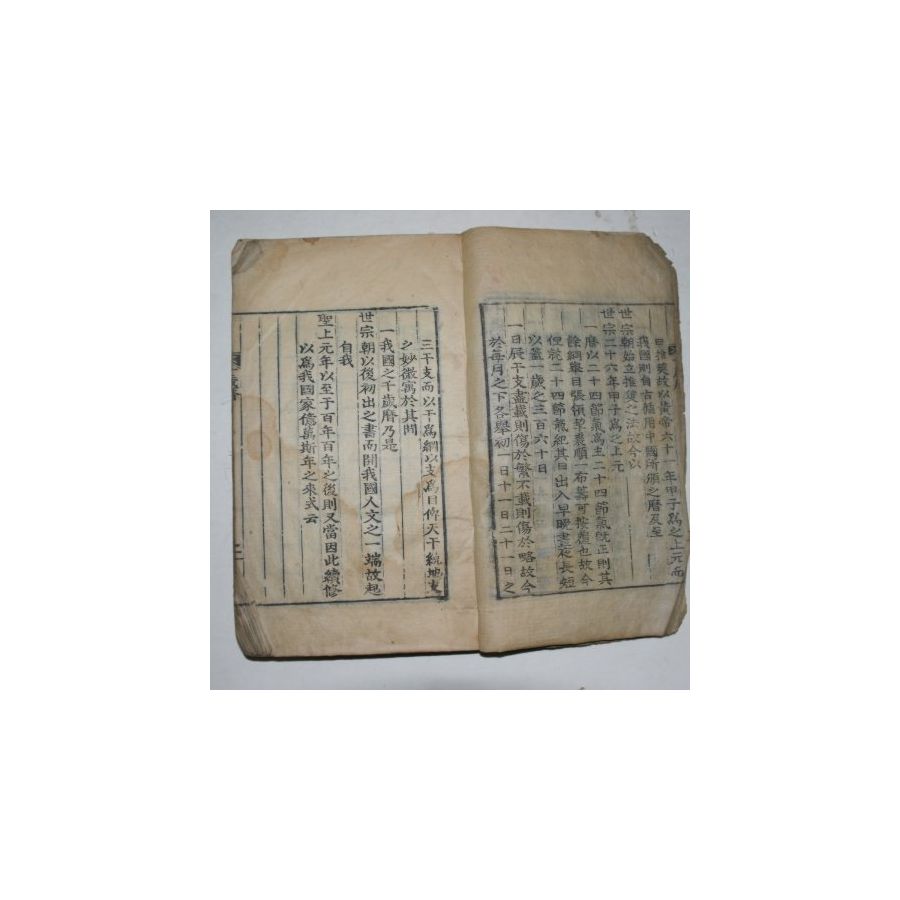 曰推奘故以黃帝六十一年甲子爲之上元而
我國則自古摘用中國所頒之曆及至
世宗朝始立推奘之法故今以
世宗二十六年甲子爲之上元
一曆以二十四節氣爲主二十四節氣旣正則其
餘綱擧目張領挈裘順一布籌可按覆也故今
但就二十四節氣紀其日出入早晩晝夜長短
以盖一歲之三百六十日
一日辰干支盡載則傷於繁不載則傷於略故今
於每月之下各擧初一日十一日二十一日之
三干支而以干爲綱以支爲目俾天干統地支
之妙微寓於其間
一我國之千歲曆乃是
世宗朝以後初出之書而開我國人文之一端故起
自我
聖上元年以至于百年百年之後則又當因此續修
以爲我國家億萬斯年之來式云